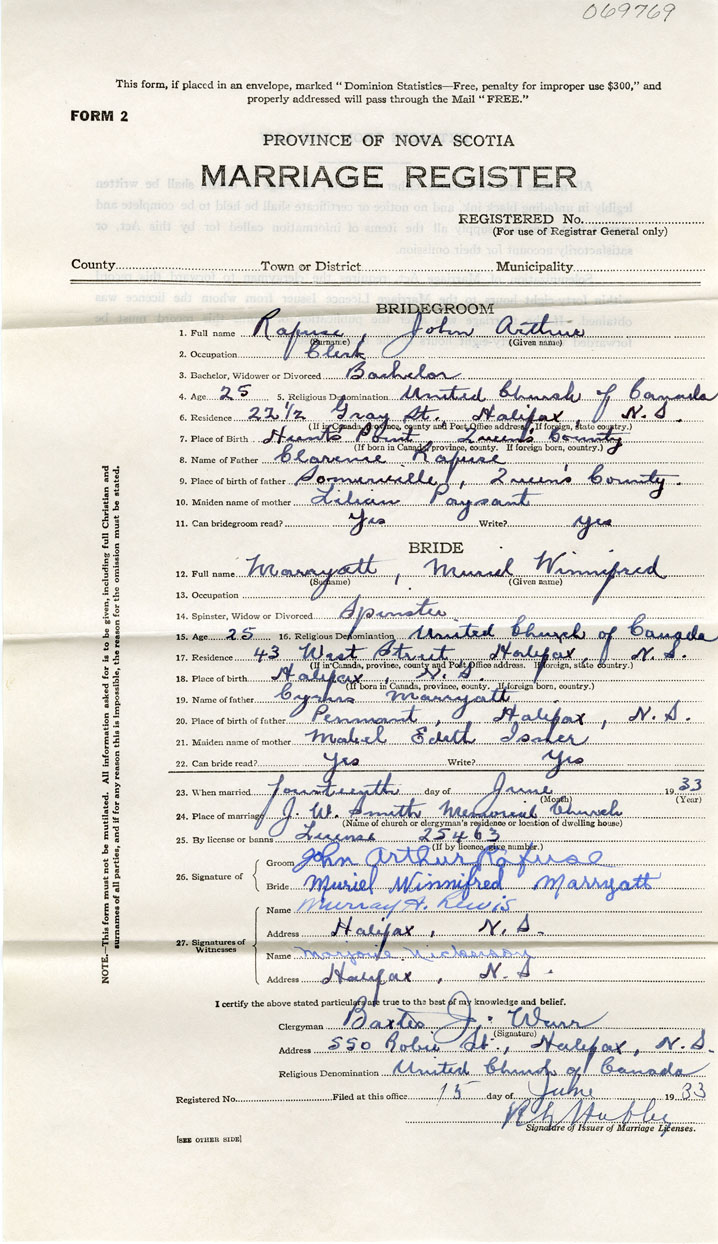 069769
This form, if placed in an envelope, marked "Dominion Statistics—Free, penalty for improper use $300," and
properly addressed will pass through the Mail "FREE."
FORM 2
PROVINCE OF NOVA SCOTIA
MARRIAGE REGISTER
REGISTERED No.
(For use of Registrar General only)
County Town or District Municipality
BRIDEGROOM
1. Full name Rafuse, John Arthur
(Surname) (Given name)
2. Occupation Clerk
3. Bachelor, Widower or Divorced Bachelor
4. Age 25 5. Religious Denomination United Church of Canada
6. Residence 22 1/2 Gray St. Halifax, N.S.
(If in Canada, province, county and Post Office address. If foreign, state country.)
7. Place of Birth Hunts Point, Queens County
(If born in Canada, province, county. If foreign born, country.)
8. Name of Father Clarence Rafuse
9. Place of birth of father Somerville, Queen's County.
10. Maiden name of mother Lilian Paysant
11. Can bridegroom read? Yes Write? yes
BRIDE
12. Full name Marryatt, Muriel Winnifred
(Surname) (Given name)
13. Occupation
14. Spinster, Widow or Divorced Spinster
15. Age 25 16. Religious Denomination United Church of Canada
17. Residence 43 West Street, Halifax, N.S.
(If in Canada, province, county and Post Office address. If foreign, state country.)
18. Place of birth Halifax, N.S.
(If born in Canada, province, county. If foreign born, country.)
19. Name of father Cyrus Marryatt
20. Place of birth of father Pennant, Halifax, N.S.
21. Maiden name of mother Mabel Edith Isner
22. Can bride read? Yes Write? Yes
23. When married fourteenth day of June 1933
(Month) (Year)
24. Place of marriage J. W. Smith Memorial Church
(Name of church or clergyman's residence or location of dwelling house)
25. By license or banns License 25463
(If by licence, give number.)
26. Signature of Groom John Arthur Rafuse
Bride Muriel Winnifred Marryatt
27. Signatures of Witnesses Name Murray H. Lewis
Address Halifax, N.S.
Name Marjorie Nickerson
Address Halifax, N.S.
I certify the above stated particulars are true to the best of my knowledge and belief.
Clergyman Baxter J. Warr
(Signature)
Address 550 Robie St., Halifax, N.S.
Religious Denomination United Church of Canada
Registered No. Filed at this office 15 day of June 1933
Signature of Issuer of Marriage Licenses.
[SEE OTHER SIDE]
NOTE.—This form must not be mutilated. All information asked for is to be given, including full Christian and
surnames of all parties, and if for any reason this is impossible, the reason for the omission must be stated.